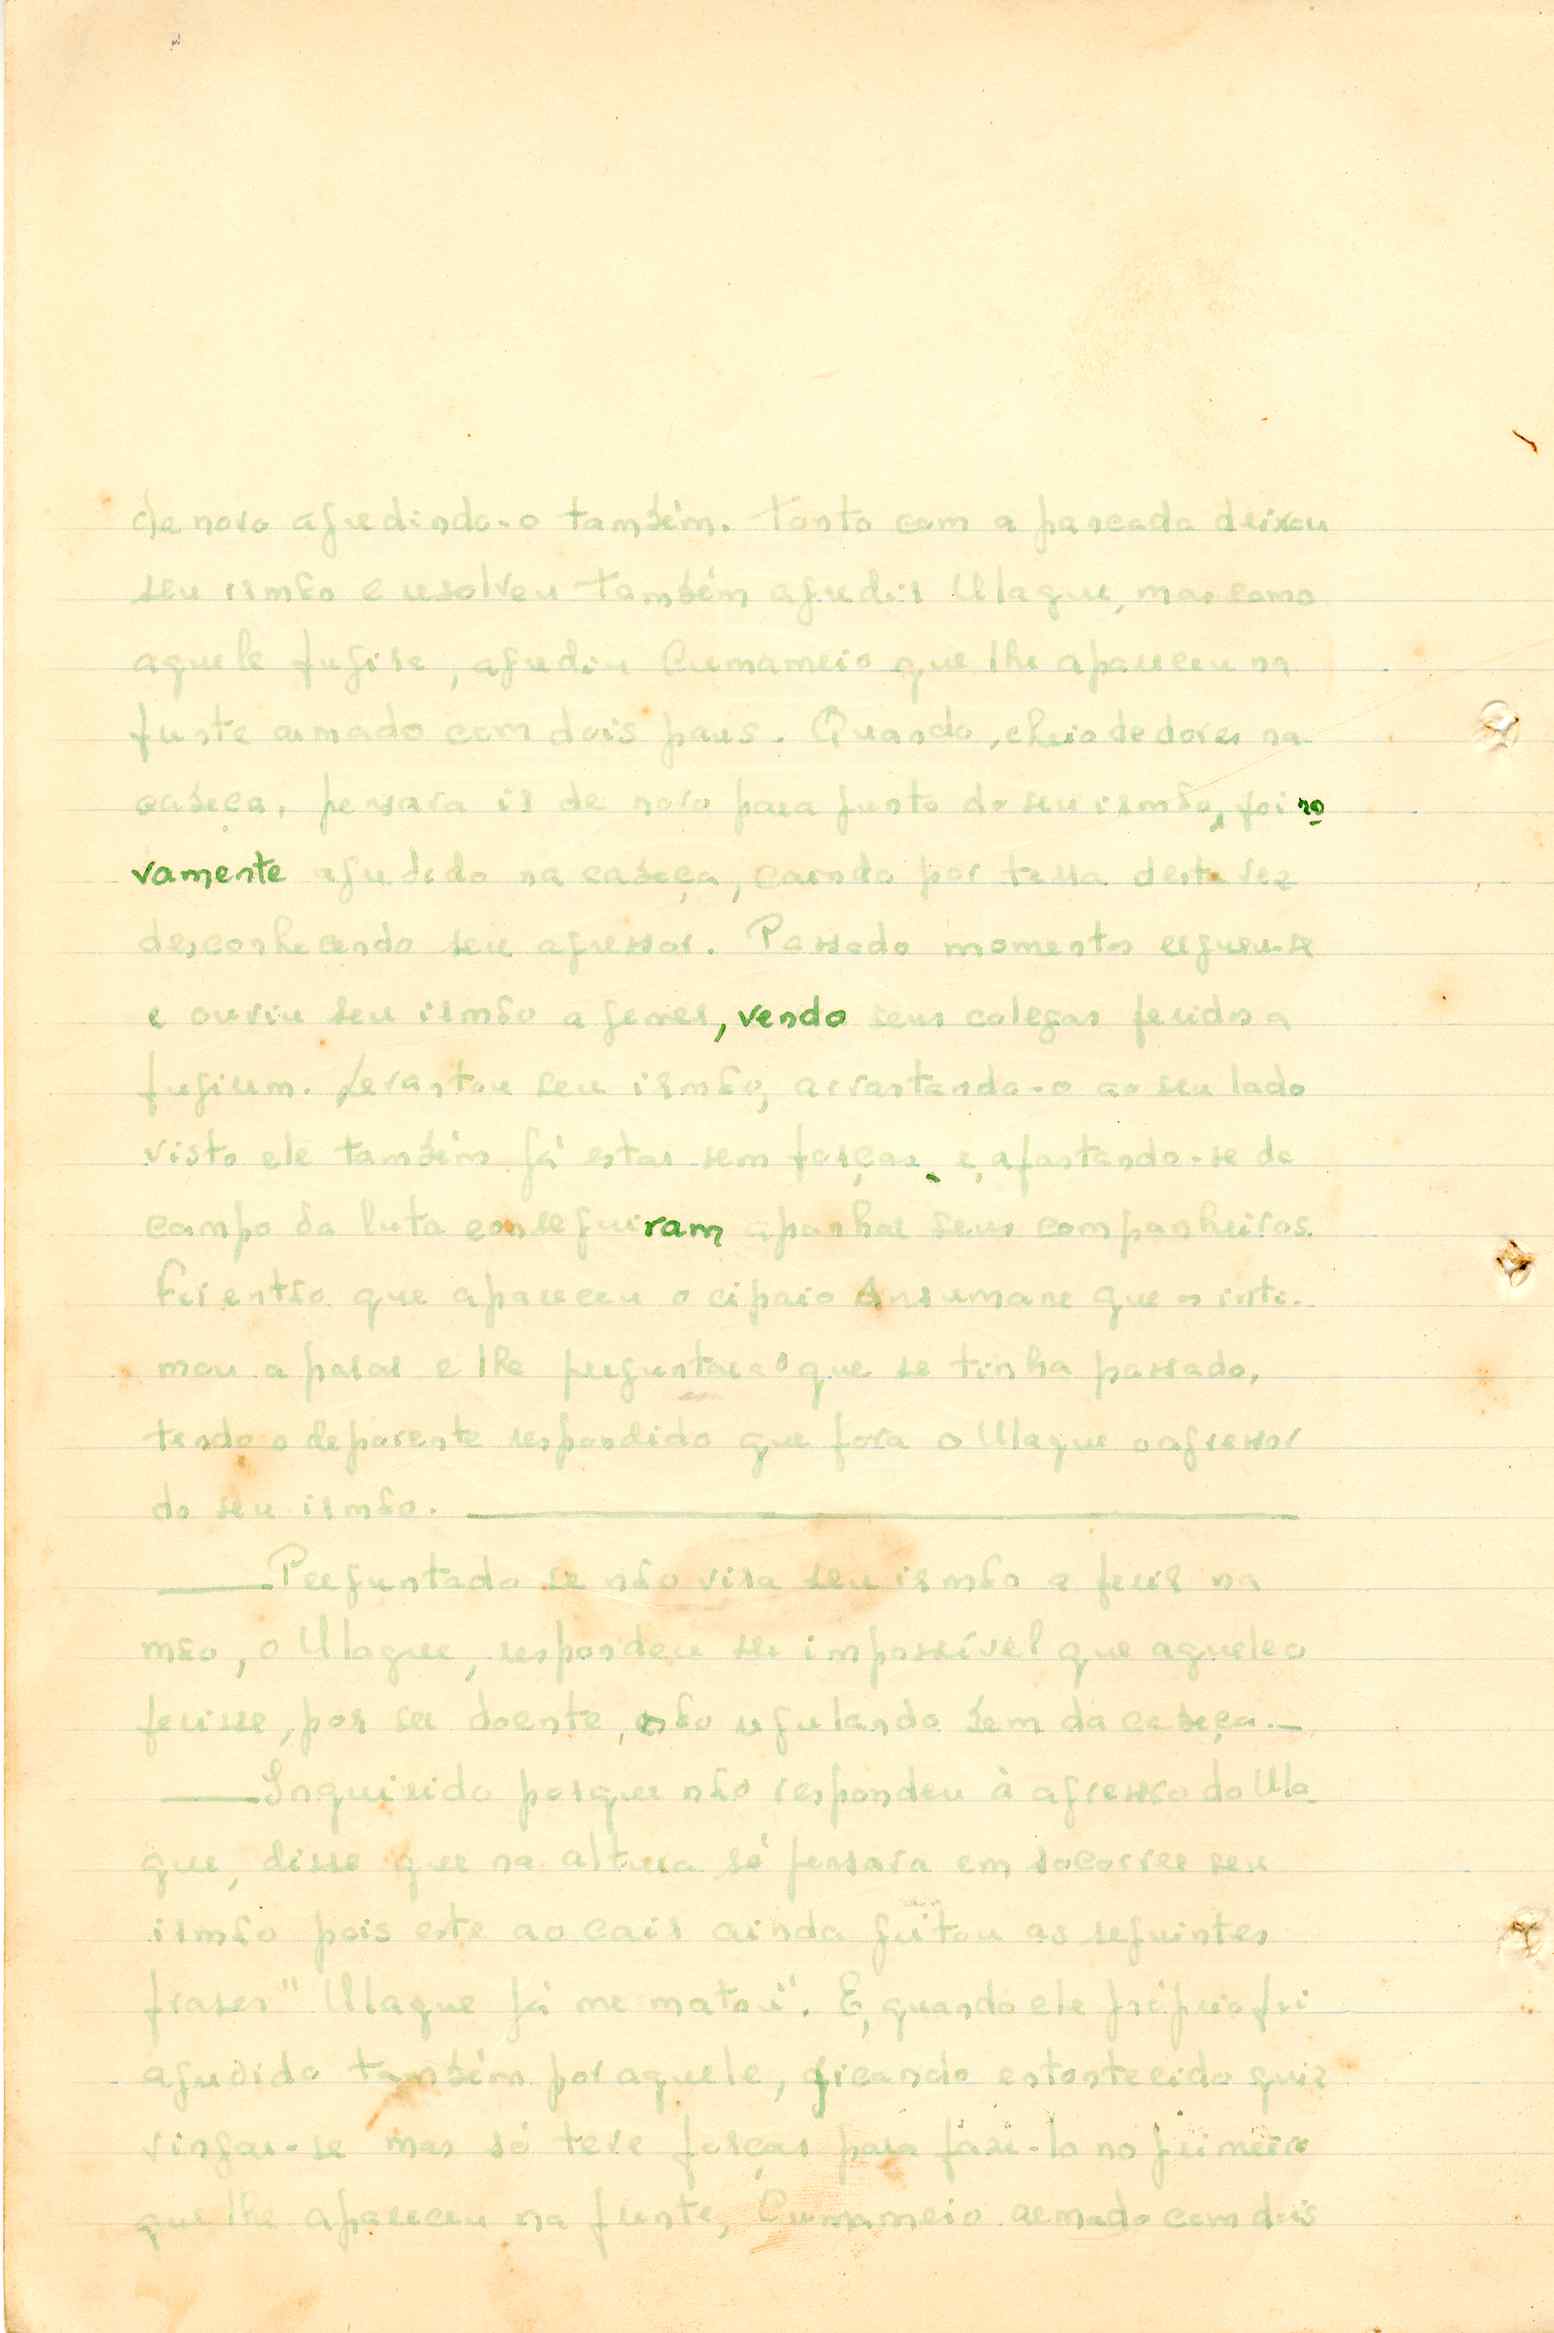 de novo agredindo-o também. Tonto com a pancada deixou
seu irmão e resolveu também agredir Ulaque, mas como
aquele fugisse, agrediu Cumameio que lhe apareceu na
frente armado com dois paus. Quando, cheio de dores na
cabeça, pensava ir de novo para junto do seu irmão, foi no
vamente agredido na cabeça, caindo por terra desta vez
desconhecendo seu agressor. Passado momentos ergueu-se
e ouviu seu irmão a gemer, vendo seus colegas feridos a
fugirem. Levantou seu irmão, arrastando-o ao seu lado
visto ele também já estar sem forças, e, afastando-se do
campo da luta conseguiram apanhar seus companheiros.
Foi então que apareceu o cipaio Ansumane que os inti-
mou a parar e lhe perguntara o que se tinha passado,
tendo o deparente respondido que fora o Ulaque o agressor
do seu irmão.
Perguntado se não vira seu irmão a ferir na
mão, o Ulaque, respondeu ser impossível que aquele o
ferisse, por ser doente, não regulando bem da cabeça.
Inquirido porque não respondeu à agressão do Ula
que, disse que na altura só pensava em socorrer seu
irmão pois este ao cair ainda gritou as seguintes
frases "Ulaque já me matou". E, quando ele próprio foi
agredido também por aquele, ficando estontecido quiz
vingar-se mas só teve forças para fazê-lo no primeiro
que lhe apareceu na frente, Cumameio armado com dois